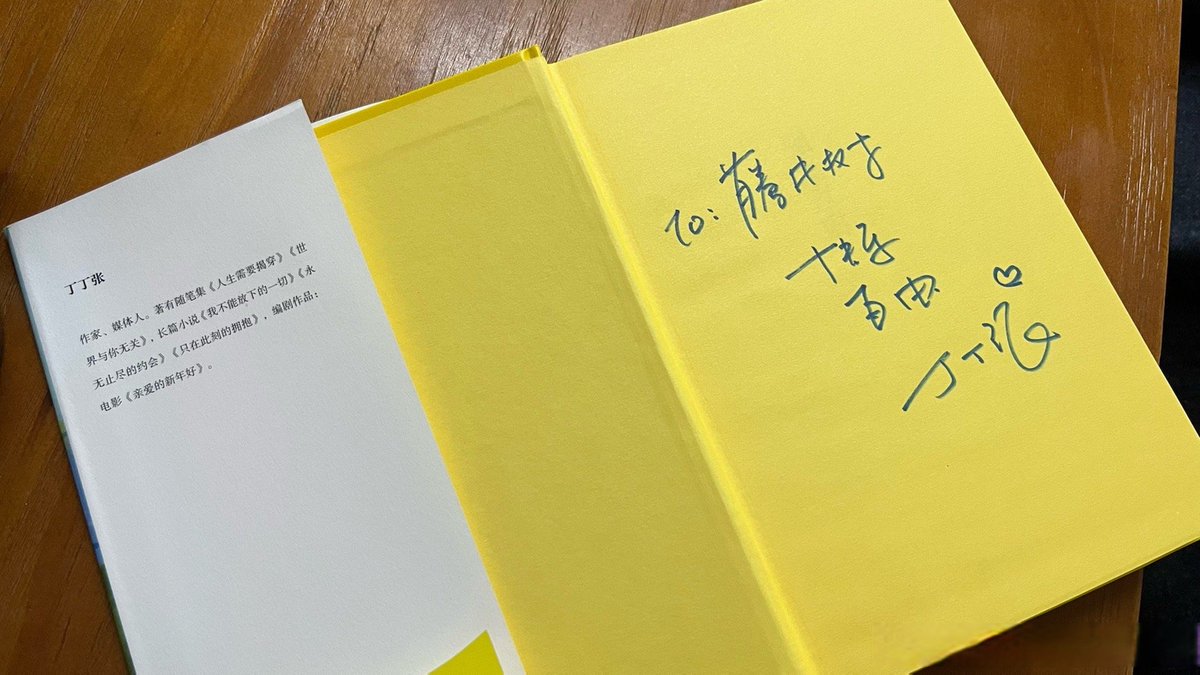 丁丁张
作家、媒体人。著有随笔集《人生需要揭穿》《世
界与你无关》,长篇小说《我不能放下的一切》《永
无止尽的约会》《只在此刻的拥抱》,编剧作品:
电影《亲爱的新年好》。
To: 藤井树
快乐
自由
丁丁张